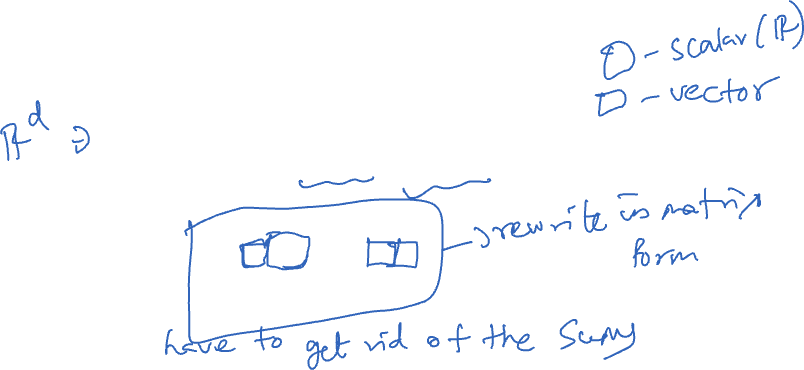 O - scalar (R)
□ - vector
R^d ⇒
→ rewrite in matrix
form
have to get rid of the sums